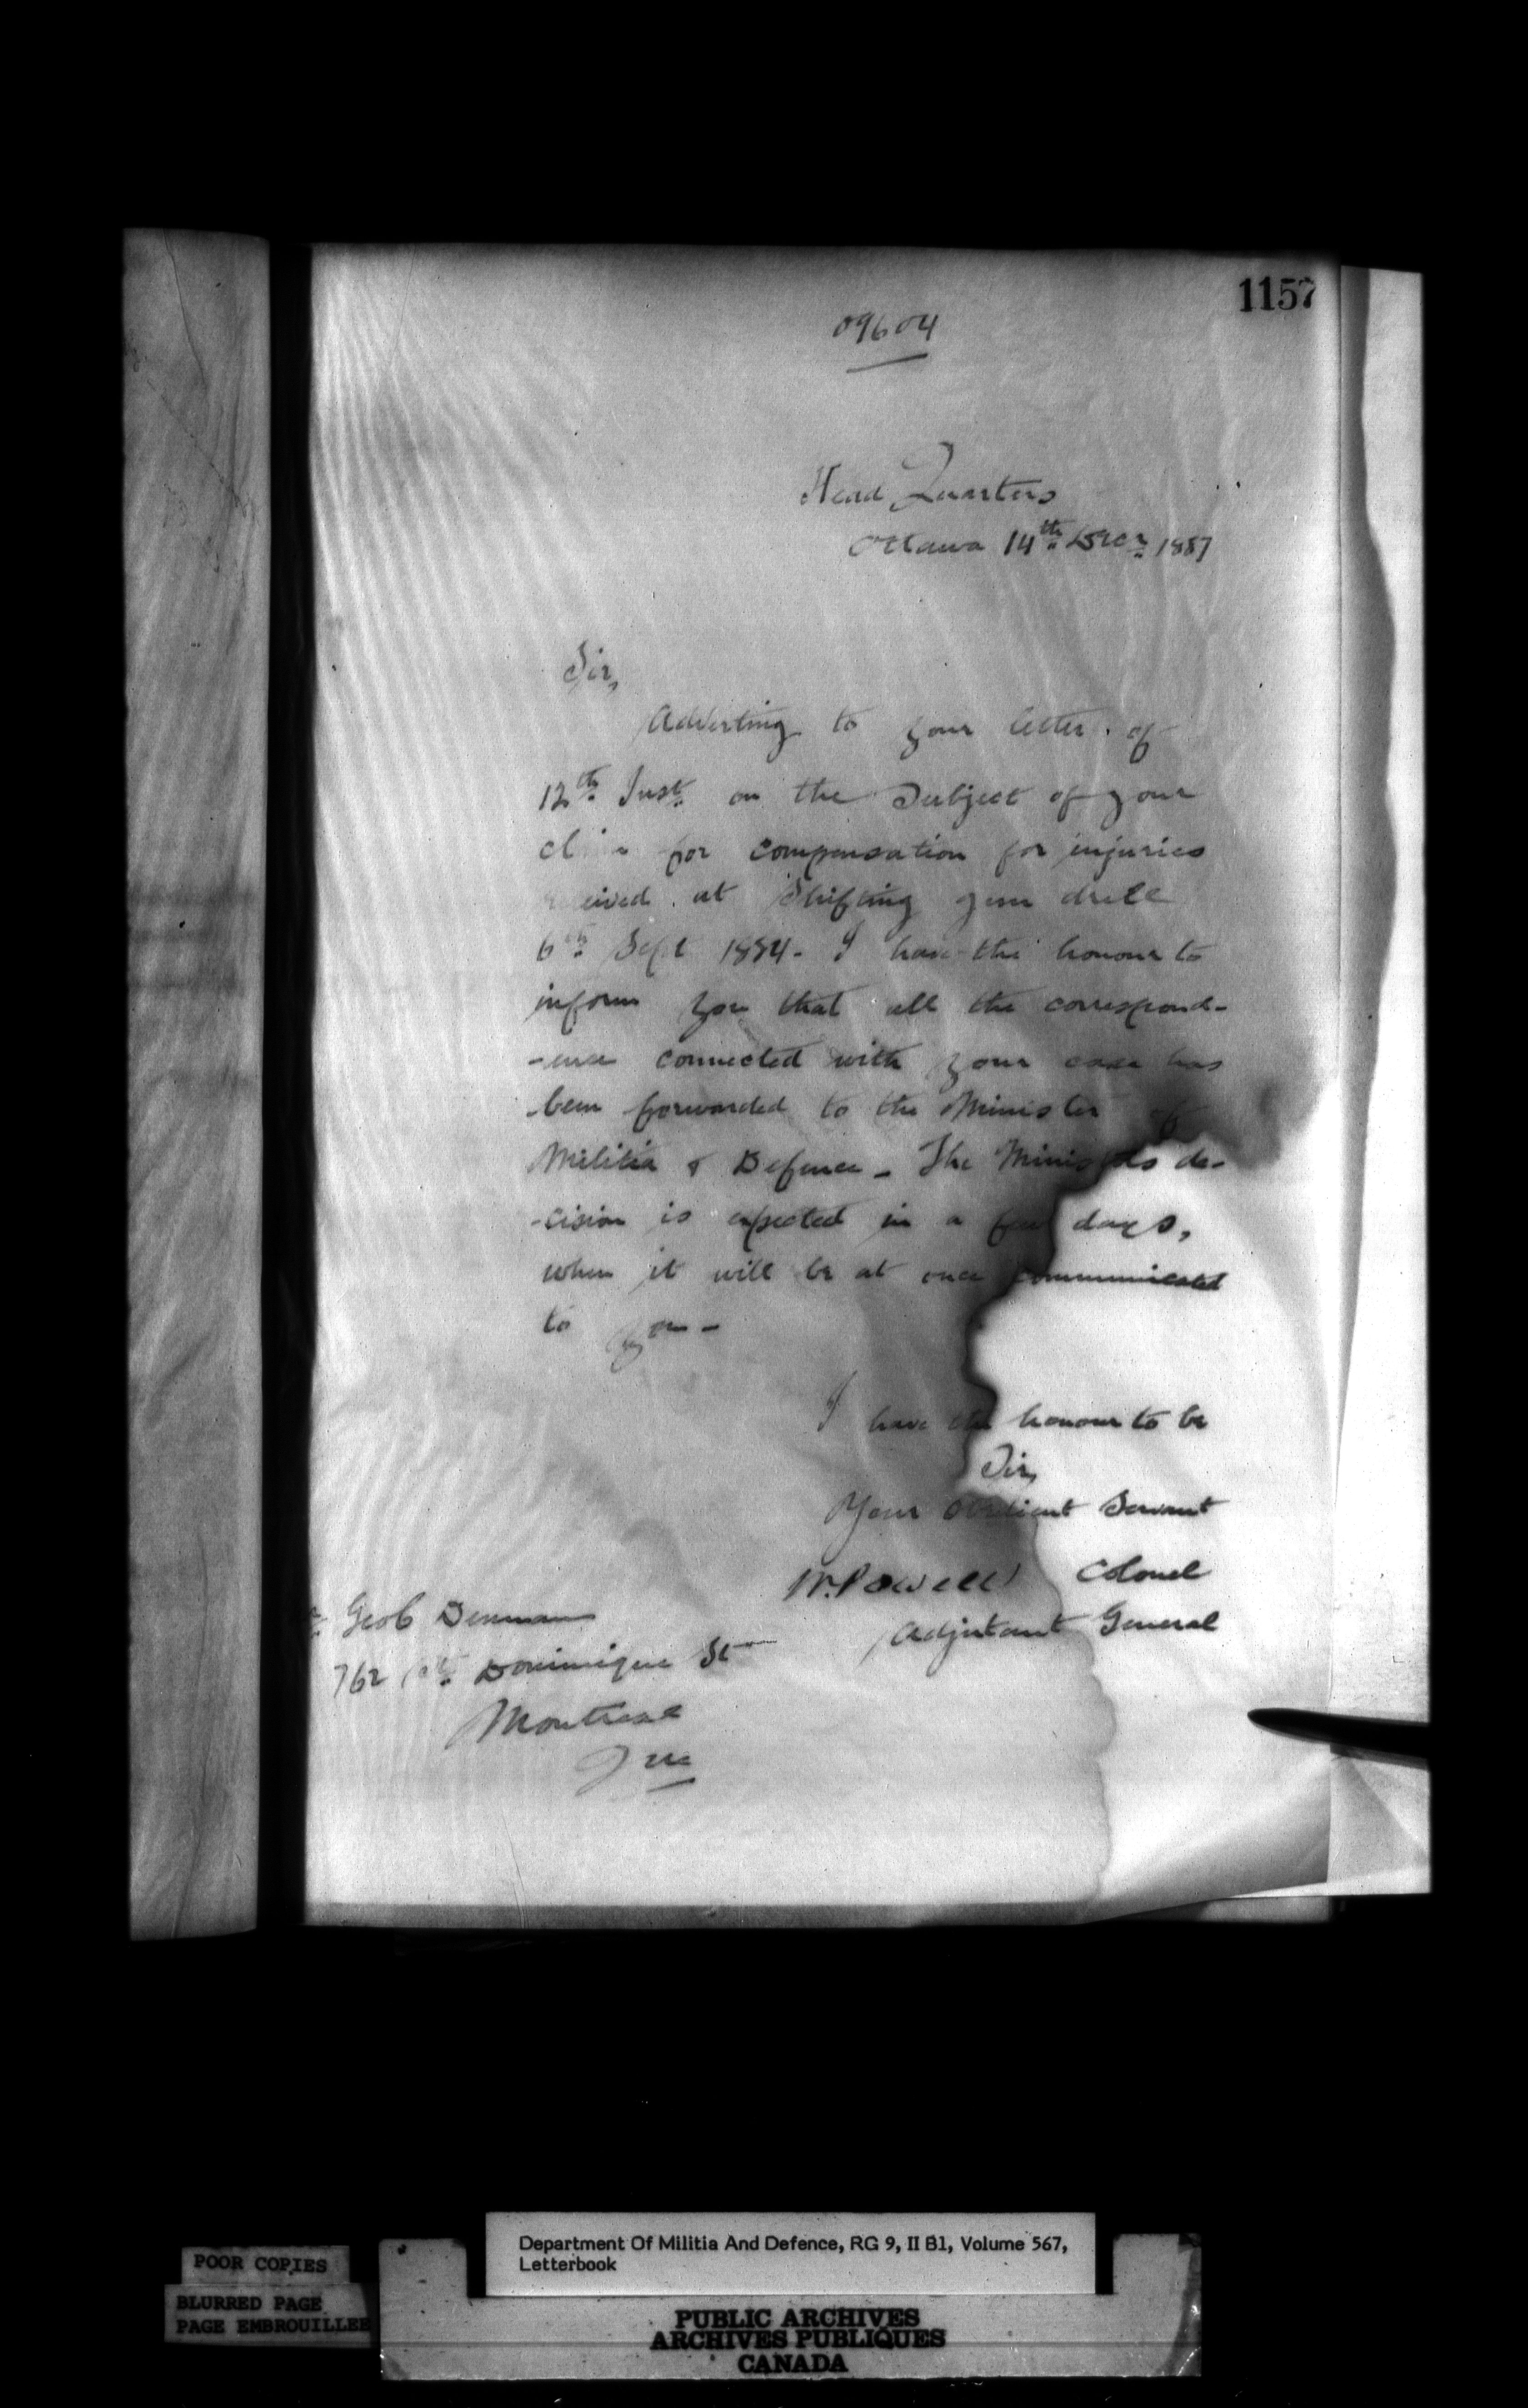 1157
09604
Head Quarters
Ottawa 14th Decr 1887
Sir,
Adverting to your letter of
12th Inst. on the Subject of your
claim for compensation for injuries
received at Shifting gun drill
6th Sept 1884 - I have the honour to
inform you that all the correspond-
-ence connected with your case has
been forwarded to the Minister of
Militia & Defence - The Ministers de-
-cision is expected in a few days,
when it will be at once communicated
to you -
I have the honour to be
Sir,
Your Obedient Servant
W. Powell Colonel
Adjutant General
Geo Denman
762 Dominique St
Montreal
Que
Department Of Militia And Defence, RG 9, II B1, Volume 567,
Letterbook
POOR COPIES
BLURRED PAGE
PAGE EMBROUILLEE
PUBLIC ARCHIVES
ARCHIVES PUBLIQUES
CANADA